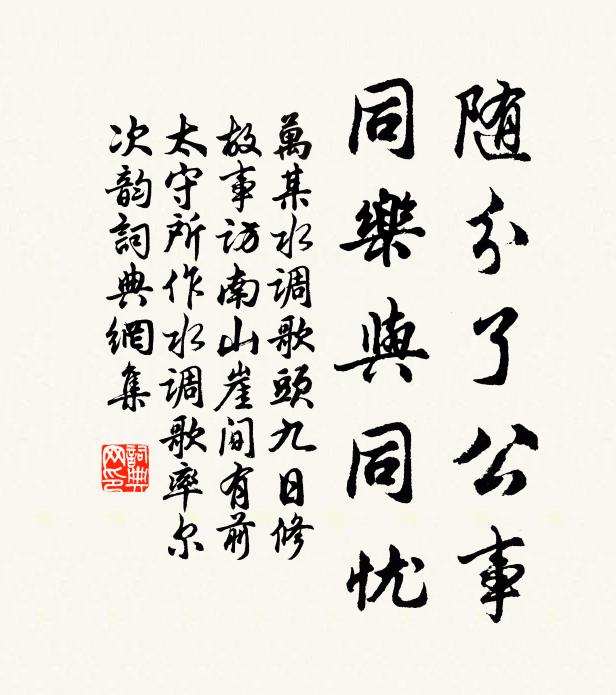 随分了公事
同樂與同忧
萬某水调歌頭九日修
故事访南山崖间有前
太守所作水调歌率尔
次韵詞典網集
詞典網印